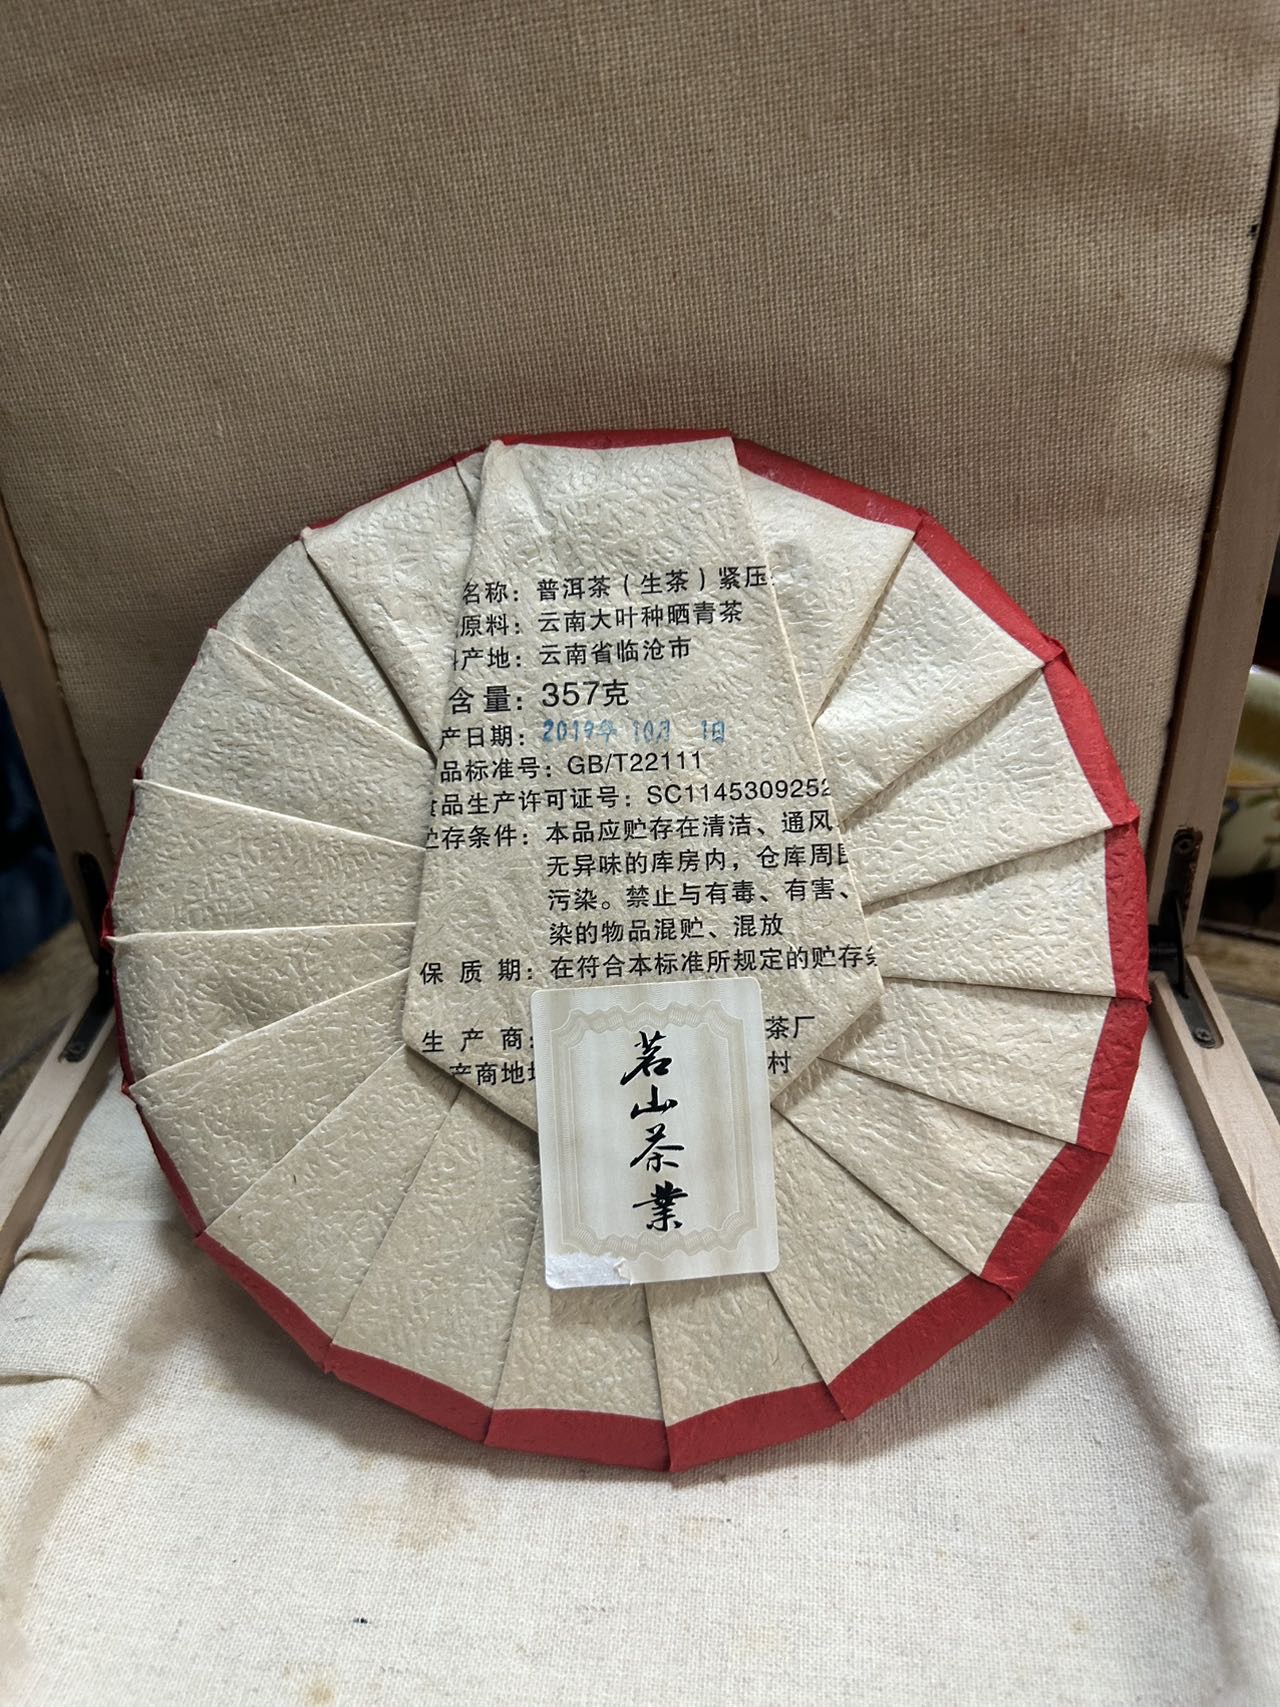 名称：普洱茶（生茶）紧压
原料：云南大叶种晒青茶
产地：云南省临沧市
含量：357克
产日期：2019年10月 1日
品标准号：GB/T22111
品生产许可证号：SC1145309252
存条件：本品应贮存在清洁、通风
无异味的库房内，仓库周
污染。禁止与有毒、有害、
染的物品混贮、混放
保质期：在符合本标准所规定的贮存
生产商： 茶厂
产商地 村
茗山茶業